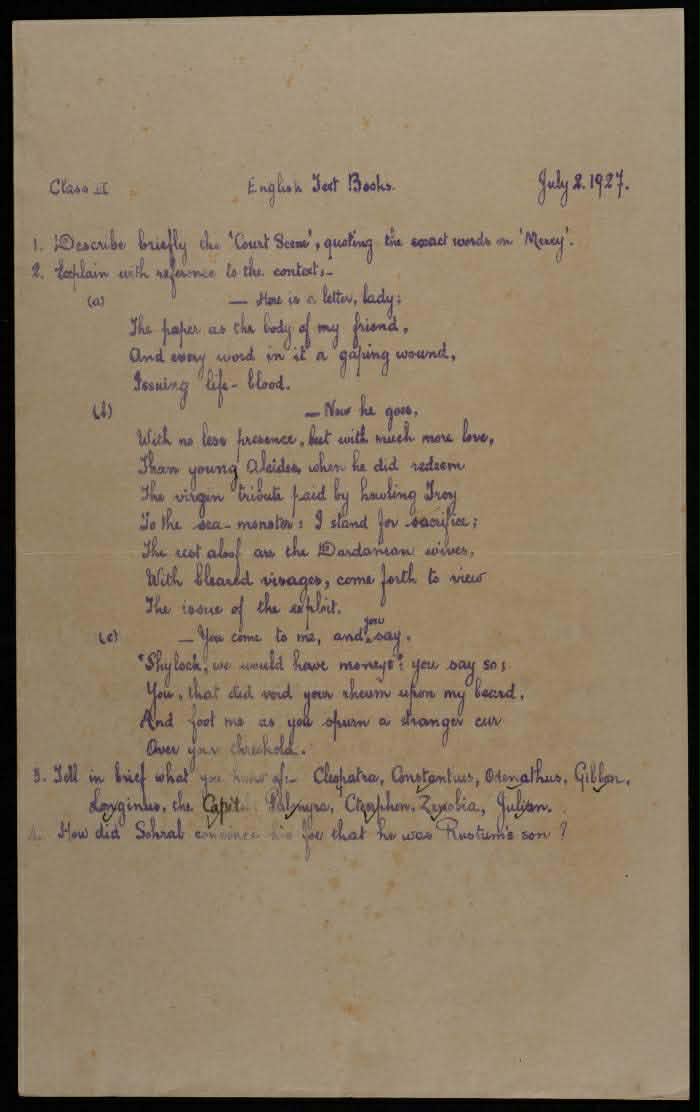 Class II English Text Books. July 2. 1927.
1. Describe briefly the 'Court Scene', quoting the exact words on 'Mercy'.
2. Explain with reference to the context:-
(a) — Here is a letter, lady;
The paper as the body of my friend,
And every word in it a gaping wound,
Issuing life-blood.
(b) — Now he goes,
With no less presence, but with much more love,
Than young Alcides, when he did redeem
The virgin tribute paid by howling Troy
To the sea-monster: I stand for sacrifice;
The rest aloof are the Dardanian wives,
With bleared visages, come forth to view
The issue of the exploit.
(c) — You come to me, and you say,
'Shylock, we would have moneys': you say so;
You, that did void your rheum upon my beard,
And foot me as you spurn a stranger cur
Over your threshold.
3. Tell in brief what you know of:- Cleopatra, Constantius, Odenathus, Gibbon,
Longinus, the Capitol, Palmyra, Ctesiphon, Zenobia, Julian.
4. How did Sohrab convince his foe that he was Rustum's son?